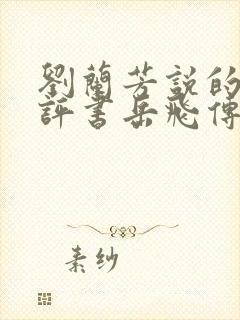 劉蘭芳說的
評書岳飛傳
素紗